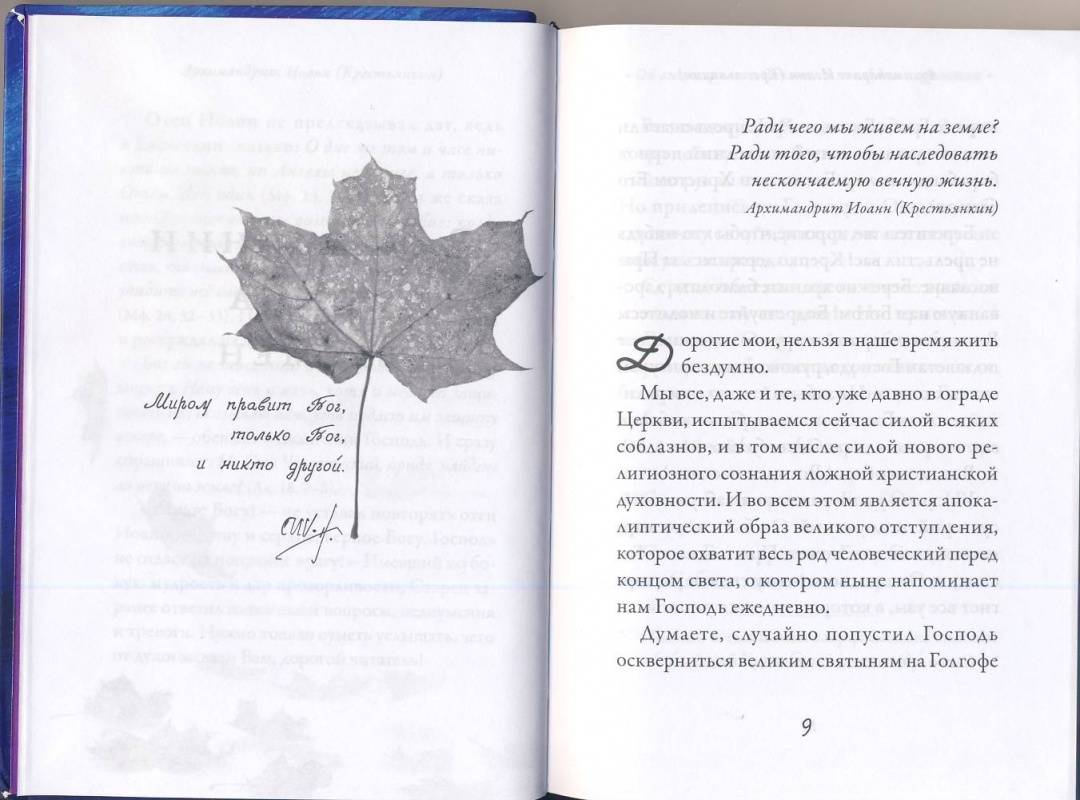 Миром правит Бог,
только Бог,
и никто другой.
Ради чего мы живем на земле?
Ради того, чтобы наследовать
нескончаемую вечную жизнь.
Архимандрит Иоанн (Крестьянкин)
Дорогие мои, нельзя в наше время жить
бездумно.
Мы все, даже и те, кто уже давно в ограде
Церкви, испытываемся сейчас силой всяких
соблазнов, и в том числе силой нового ре-
лигиозного сознания ложной христианской
духовности. И во всем этом является апока-
липтический образ великого отступления,
которое охватит весь род человеческий перед
концом света, о котором ныне напоминает
нам Господь ежедневно.
Думаете, случайно попустил Господь
оскверниться великим святыням на Голгофе
9